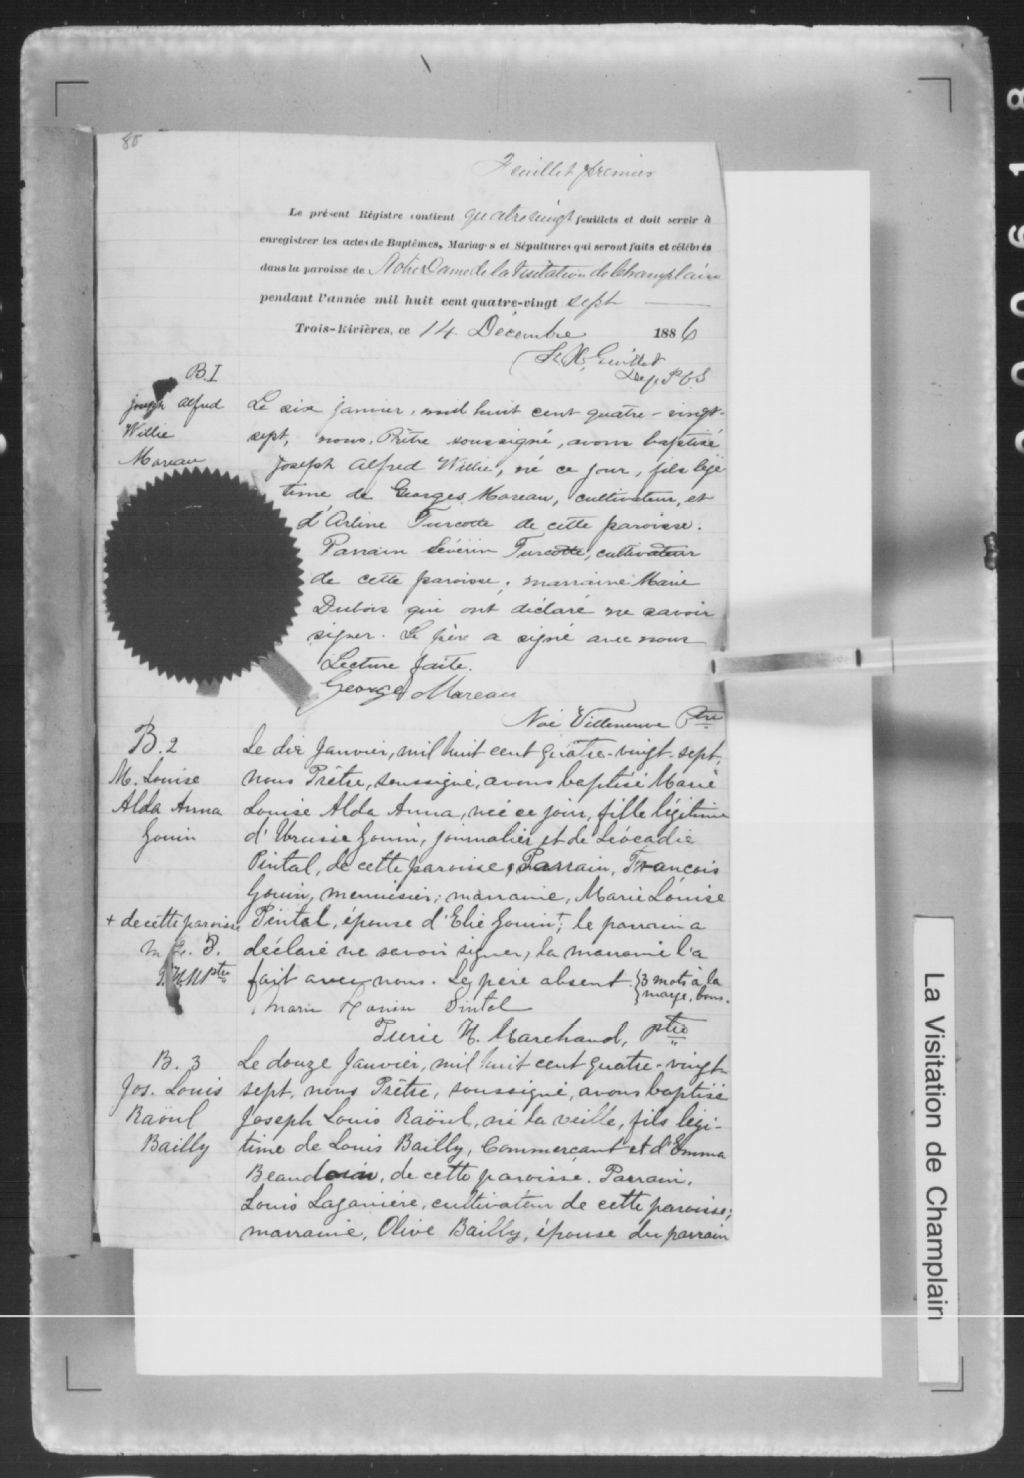 80
Feuillet premier
Le présent Régistre contient quatre vingt feuillets et doit servir à
enregistrer les actes de Baptêmes, Mariages et Sépultures qui seront faits et célébrés
dans la paroisse de Notre Dame de la Visitation de Champlain
pendant l'année mil huit cent quatre-vingt sept
Trois-Rivières, ce 14 Décembre 1886
Guillet
Dep P C S
B.1
Joseph Alfred
Willie
Moreau
Le six janvier, mil huit cent quatre-vingt-
sept, nous, Prêtre soussigné, avons baptisé
Joseph Alfred Willie, né ce jour, fils légi
time de Georges Moreau, cultivateur, et
d'Arline Turcotte de cette paroisse.
Parrain Sévérin Turcotte, cultivateur
de cette paroisse; marraine Marie
Dubois qui ont déclaré ne savoir
signer. Le père a signé avec nous
Lecture faite.
George Moreau
Noé Villeneuve Ptre
B.2
M. Louise
Alda Anna
Gouin
Le dix Janvier, mil huit cent quatre-vingt-sept,
nous Prêtre, soussigné, avons baptisé Marie
Louise Alda Anna, née ce jour, fille légitime
d' Gouin, journalier et de Léocadie
Pintal, de cette paroisse. Parrain, François
Gouin, menuisier; marraine, Marie Louise
+ de cette paroisse
Pintal, épouse d'Elie Gouin+; le parrain a
M. L. P.
déclaré ne savoir signer, la marraine l'a
T. H. M ptre
fait avec nous. Le père absent. {3 mots à la
marge, bons.
Marie Louise Pintal
H. Marchand, ptre
B. 3
Jos. Louis
Raöul
Bailly
Le douze Janvier, mil huit cent quatre-vingt-
sept, nous Prêtre, soussigné, avons baptisé
Joseph Louis Raöul, né la veille, fils légi-
time de Louis Bailly, Commerçant et d'Emma
Beaudoin, de cette paroisse. Parrain,
Louis Laganière, cultivateur de cette paroisse;
marraine, Olive Bailly, épouse du parrain
La Visitation de Champlain